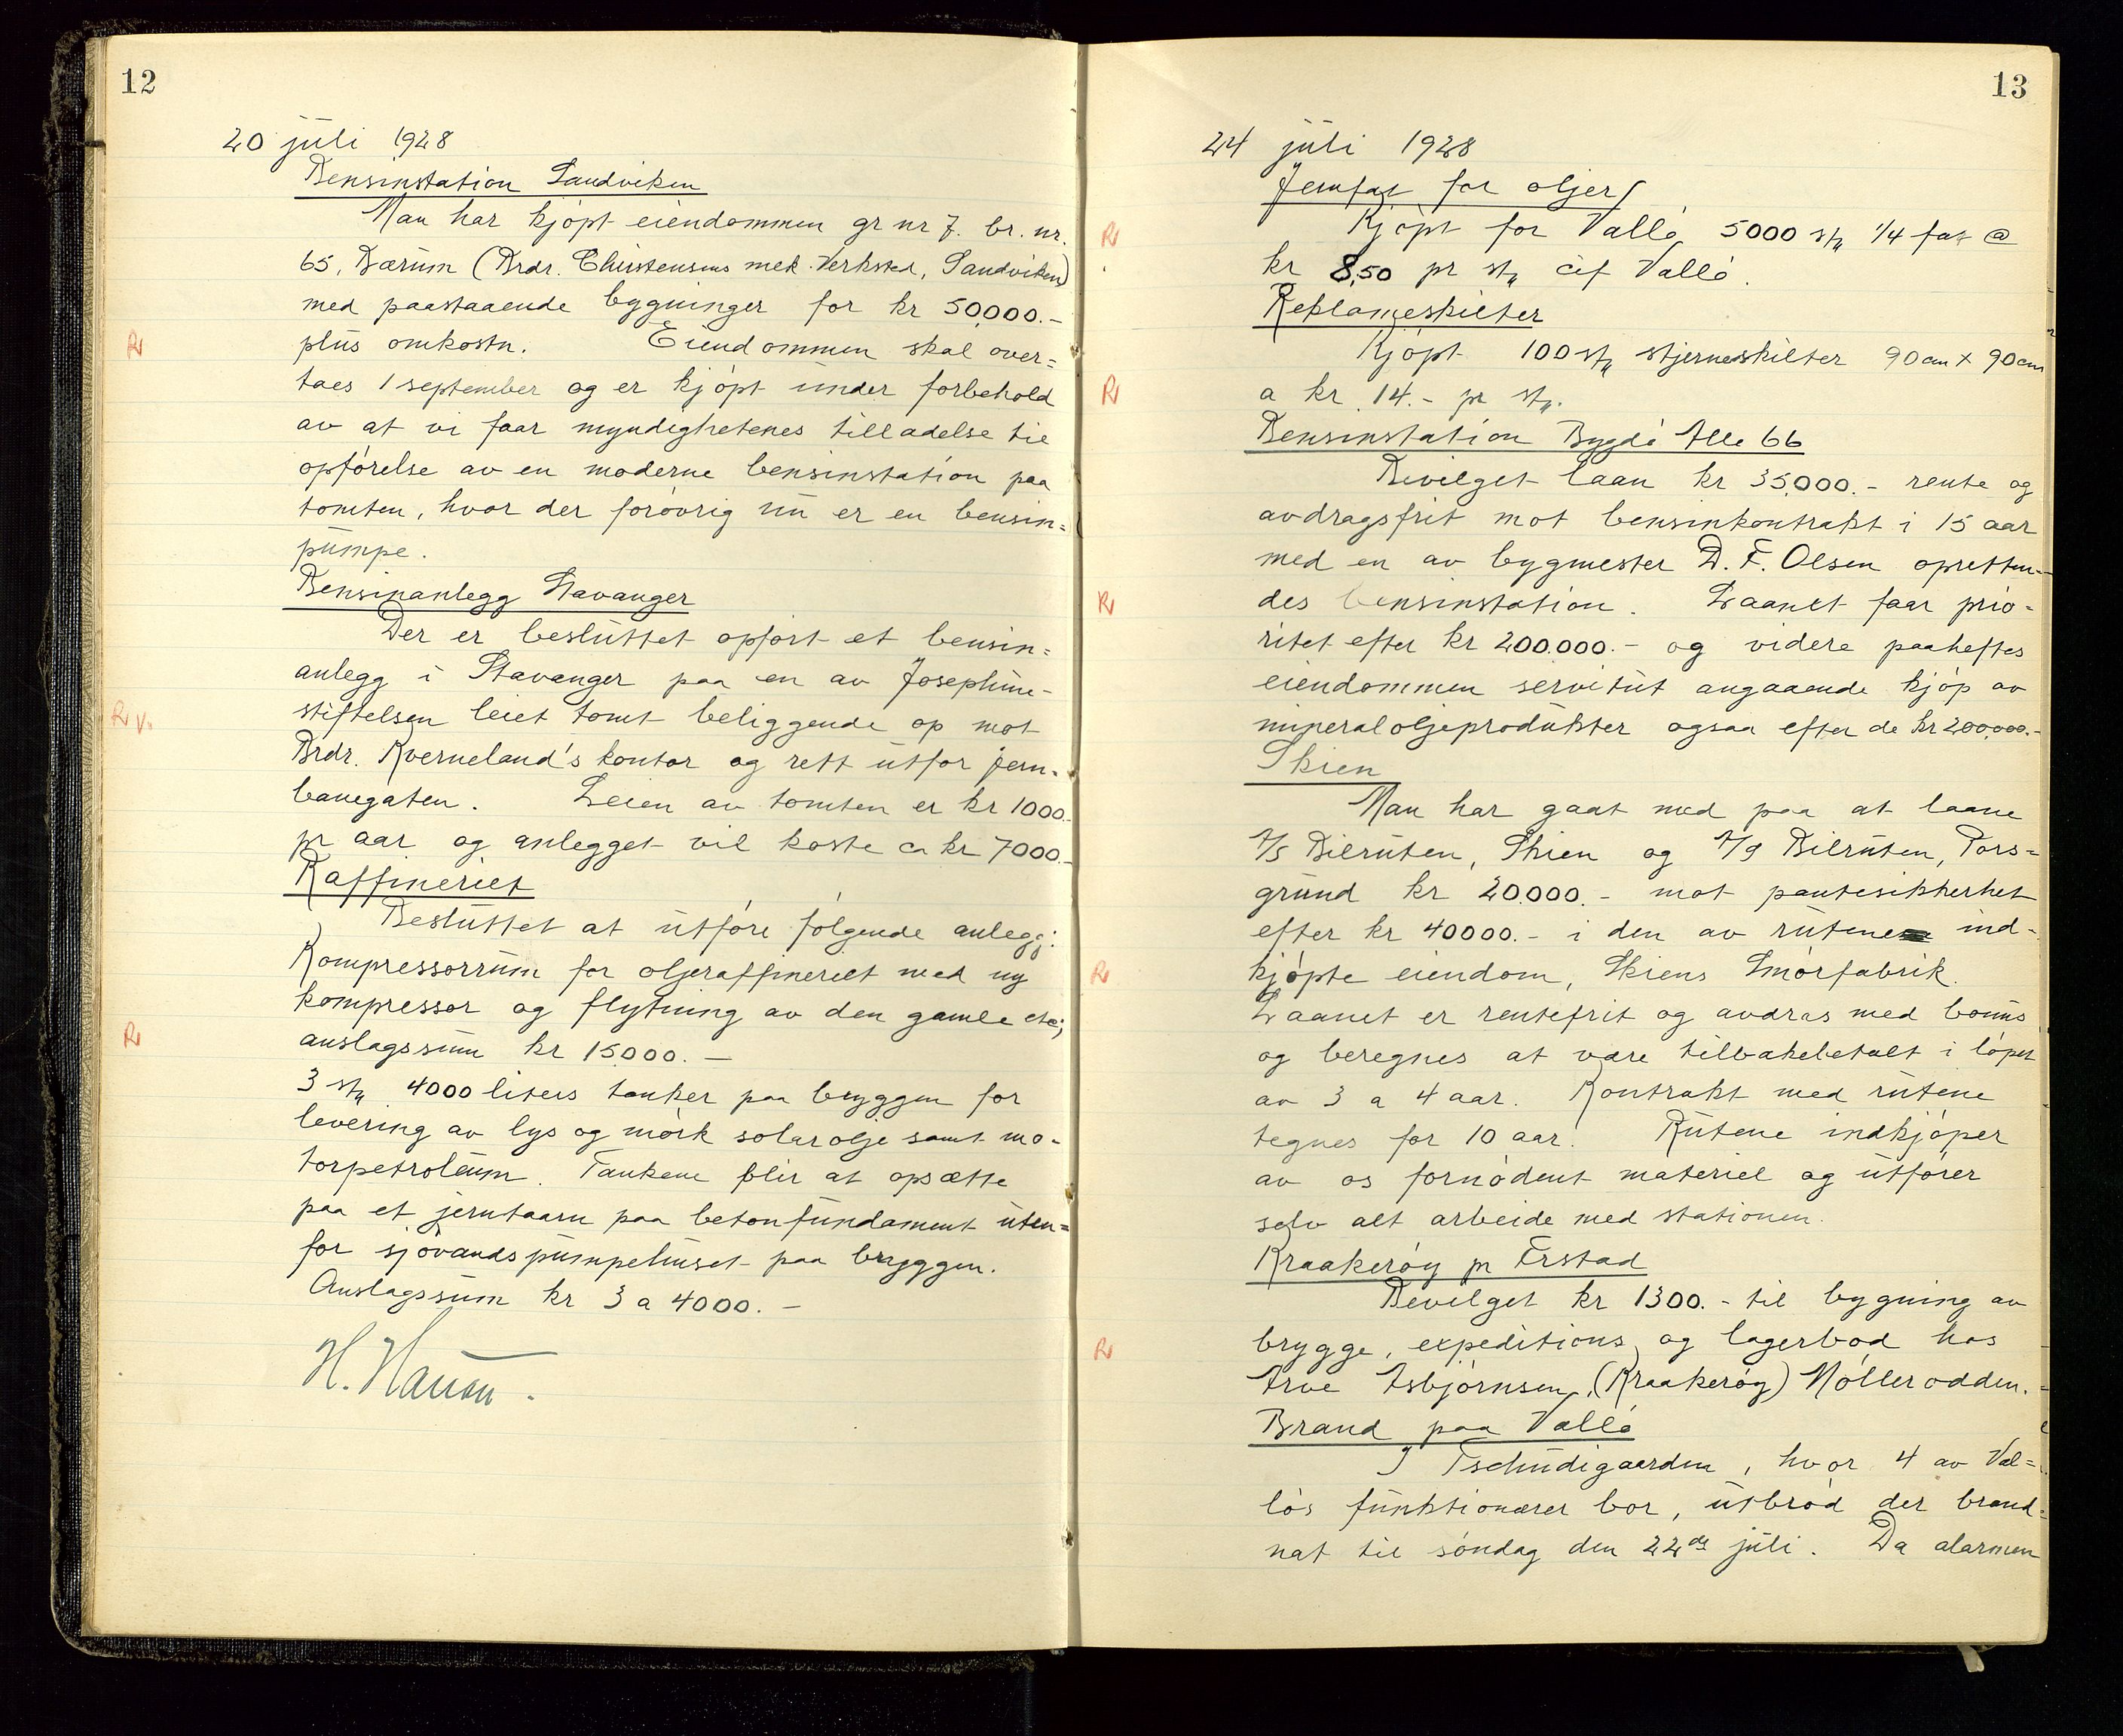 12
20 juli 1928
Bensinstation Sandviken
Man har kjöpt eiendommen gr nr 7. br. nr.
65, Bærum (Brdr. Christensens mek. Verksted, Sandviken)
med paastaaende bygninger for kr 50,000.-
R plus omkostn. Eiendommen skal over=
taes 1 september og er kjöpt under forbehold
av at vi faar myndighetenes tilladelse til
opförelse av en moderne bensinstation paa
tomten, hvor der forövrig nu er en bensin=
pumpe.
Bensinanlegg Stavanger
Der er besluttet opfört et bensin=
anlegg i Stavanger paa en av Josephine-
R V. stiftelsen leiet tomt beliggende op mot
Brdr. Kverneland's kontor og rett utfor Jern-
banegaten. Leien av tomten er kr 1000.-
pr aar og anlegget vil koste ca kr 7000.-
Raffineriet
Besluttet at utföre fölgende anlegg:
Kompressorrum for oljeraffineriet med ny
kompressor og flytning av den gamle etc;
R anslagssum kr 15.000.-
3 stk 4000 liters tanker paa bryggen for
levering av lys og mörk solarolje samt mo-
torpetroleum. Tankene blir at opsætte
paa et jerntaarn paa betonfundament uten=
for sjövandspumpehuset paa bryggen.
Anslagssum kr 3 a 4000.-
H. Hansen.
13
24 juli 1928
Jernfat for oljer
R Kjöpt for Vallö 5000 stk 1/4 fat @
kr 8,50 pr stk cif Vallö.
Reklameskilter
Kjöpt 100 stk stjerneskilter 90 cm x 90 cm
R a kr 14.- pr stk.
Bensinstation Bygdö Alle 66
Bevilget laan kr 35,000.- rente og
avdragsfrit mot bensinkontrakt i 15 aar
med en av bygmester D. F. Olsen opretten-
R des bensinstation. Laanet faar prio-
ritet efter kr 200.000.- og videre paaheftes
eiendommen servitut angaaende kjöp av
mineraloljeprodukter ogsaa efter de kr 200,000.-
Skien
Man har gaat med paa at laane
A/S Bilruten, Skien og A/S Bilruten, Pors=
grund kr 20.000.- mot pantesikkerhet
efter kr 40000.- i den av rutene ind-
R kjöpte eiendom, Skiens Smörfabrik.
Laanet er rentefrit og avdras med bonus
og beregnes at være tilbakebetalt i löpet
av 3 a 4 aar. Kontrakt med rutene
tegnes for 10 aar. Rutene indkjöper
av os fornödent materiel og utförer
selv alt arbeide med stationen.
Kraakeröy pr Frstad
Bevilget kr 1300.- til bygning av
R brygge, expeditions og lagerbod hos
Arve Asbjörnsen, (Kraakeröy) Möllerodden.
Brand paa Vallö
I Tschudigaarden, hvor 4 av Val=
lös funktionærer bor, utbröd der brand
nat til söndag den 22de juli. Da alarmen